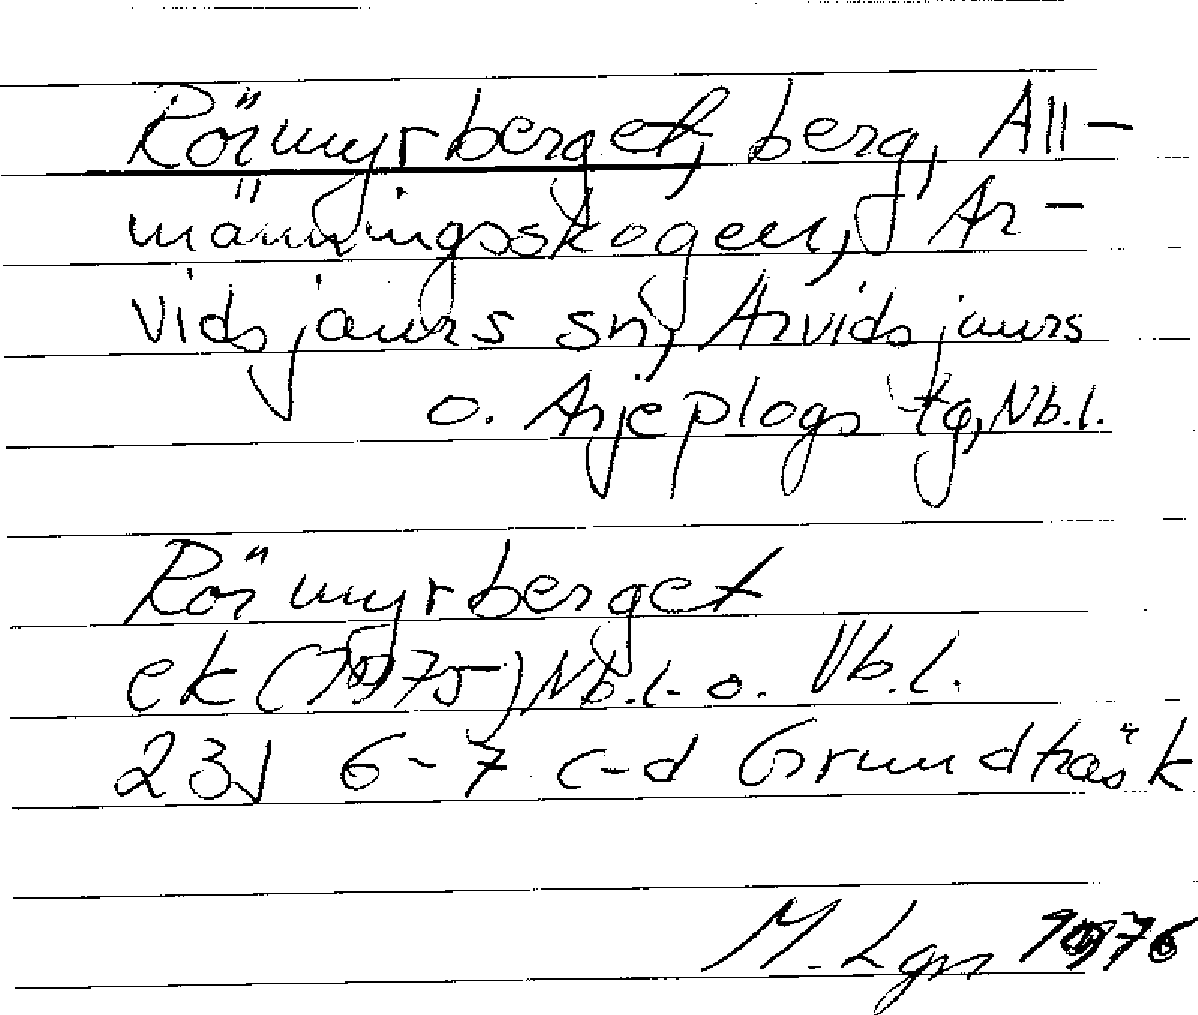 Rörmyrberget, berg, All-
männingsskogen, Ar-
vidsjaurs sn, Arvidsjaurs
o. Arjeplogs tg, Nb.l.
Rörmyrberget
ek (1975) Nb.l. o. Vb.l.
23J 6-7 c-d Grundträsk
M. Lgn 1976